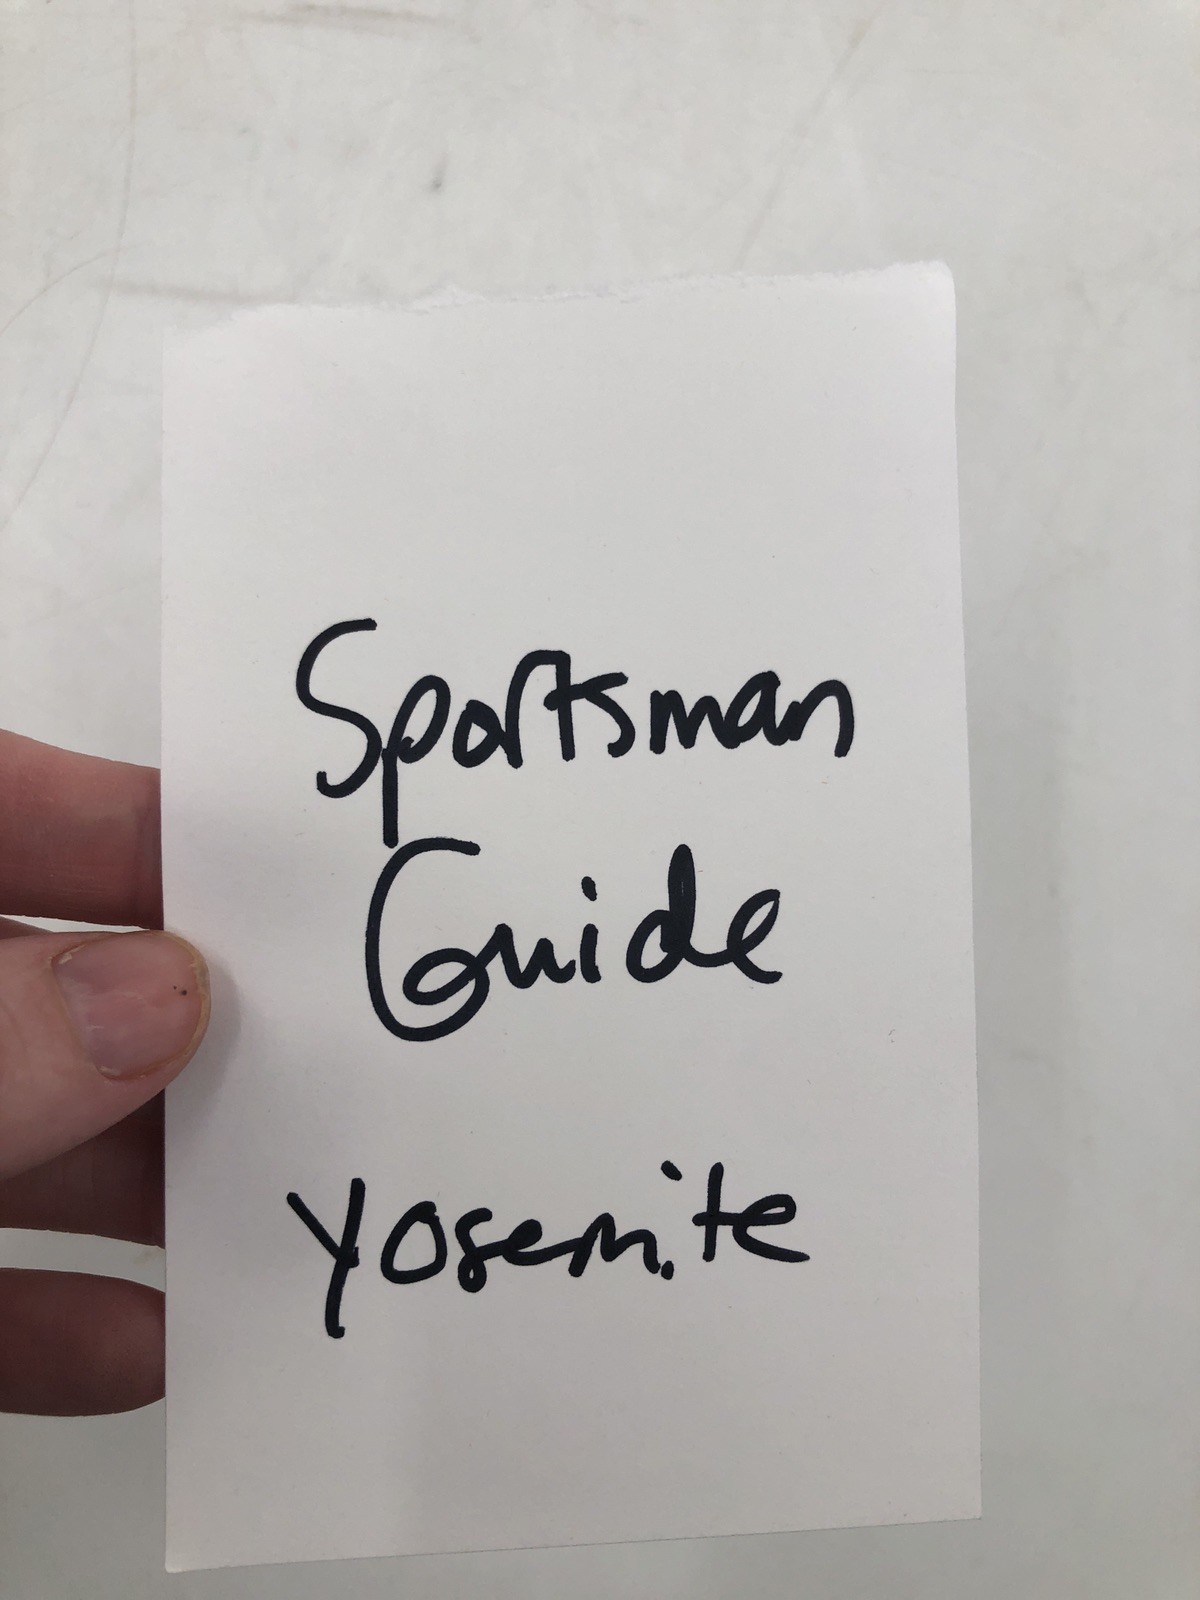 Sportsman
Guide
Yosemite